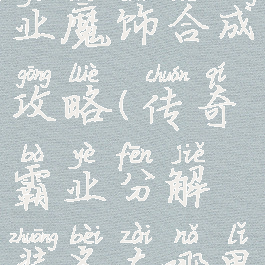 业魔饰合成
gōng lüè chuán qí
攻略(传奇
bà yè fēn jiě
霸业分解
zhuāng bèi zài nǎ lǐ
装备在哪里